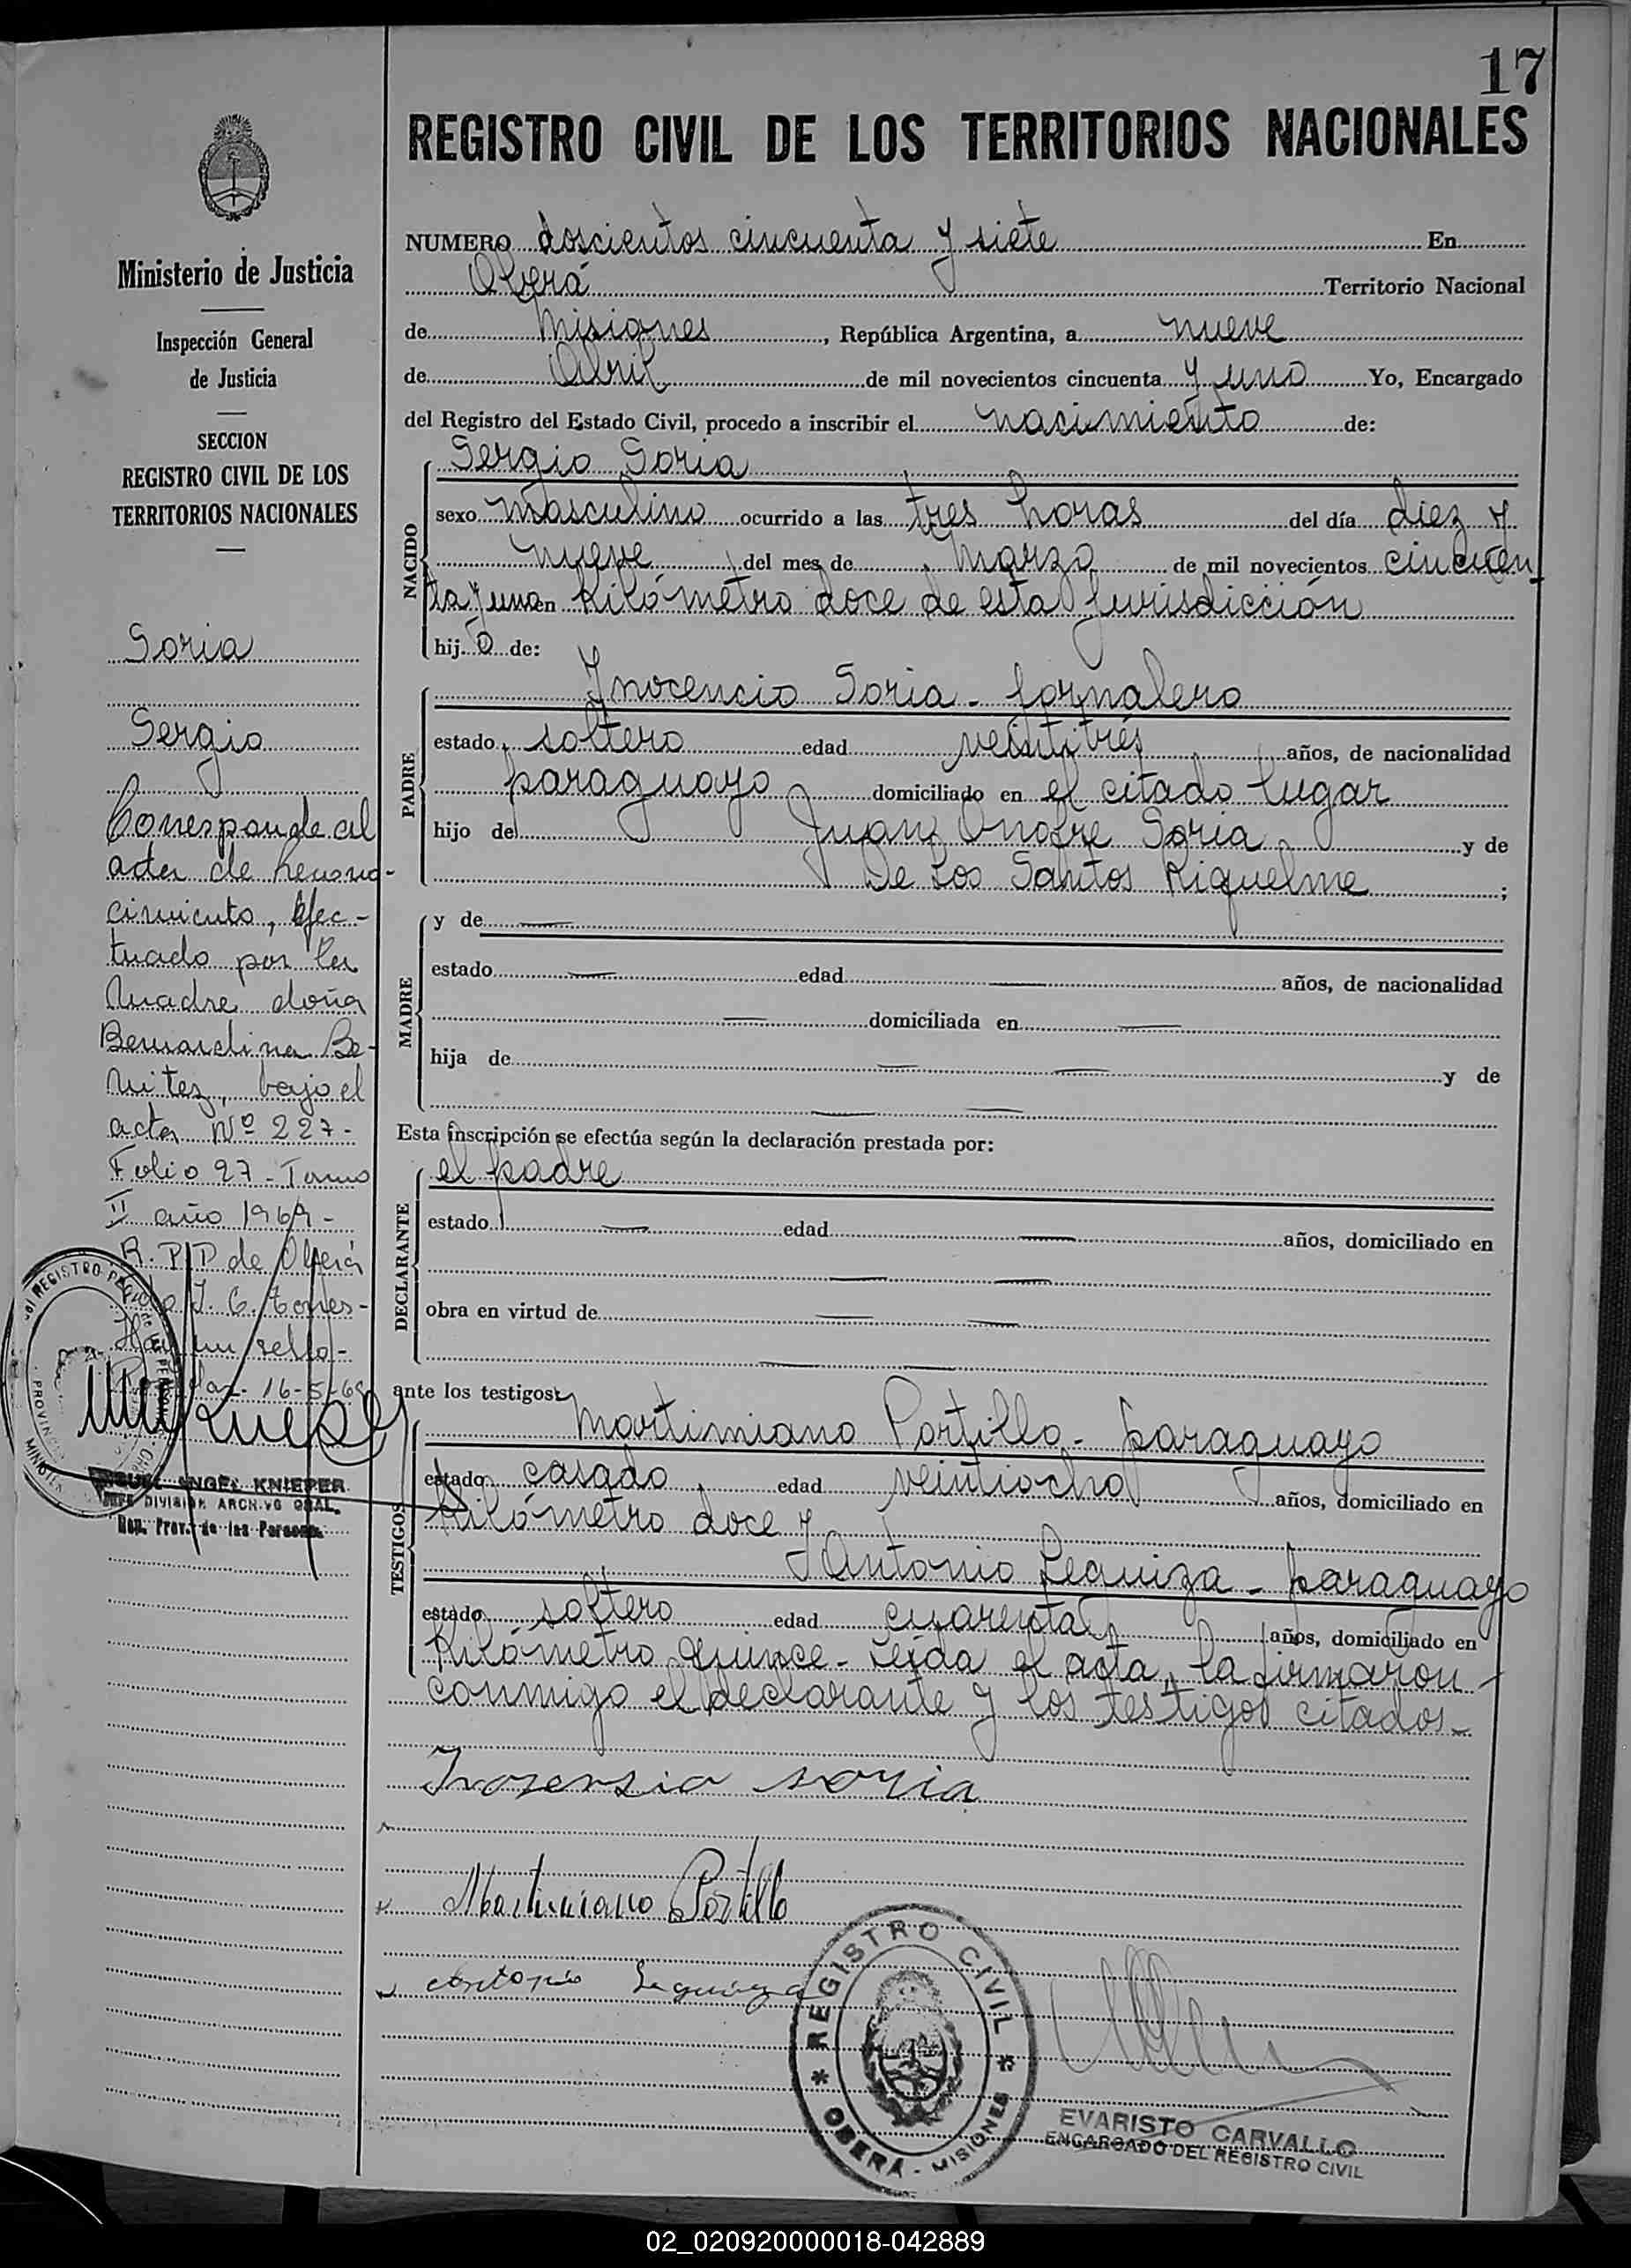 17
REGISTRO CIVIL DE LOS TERRITORIOS NACIONALES
Ministerio de Justicia
Inspección General
de Justicia
SECCION
REGISTRO CIVIL DE LOS
TERRITORIOS NACIONALES
Soria
Sergio
Corresponde al
acta de recono-
cimiento, efec-
tuado por la
Madre doña
Bernardina Be-
nitez, bajo el
acta Nº 227-
Folio 27 - Tomo
II año 1969-
R. P. P de Oberá
J. C. Torres-
Hay un sello-
16-5-69
ANGEL KNIEPER
JEFE DIVISION ARCHIVO GRAL.
Reg. Prov. de las Personas
NUMERO doscientos cincuenta y siete En
Oberá Territorio Nacional
de Misiones, República Argentina, a nueve
de Abril de mil novecientos cincuenta y uno Yo, Encargado
del Registro del Estado Civil, procedo a inscribir el nacimiento de:
NACIDO
Sergio Soria
sexo masculino ocurrido a las tres horas del día diez y
nueve del mes de marzo de mil novecientos cincuen
ta y uno en Kilómetro doce de esta jurisdicción
hijo de:
PADRE
Inocencio Soria - jornalero
estado soltero edad veintitrés años, de nacionalidad
paraguayo domiciliado en el citado lugar
hijo de Juan Onofre Soria y de
De Los Santos Riquelme ;
MADRE
y de
estado edad años, de nacionalidad
domiciliada en
hija de y de
Esta inscripción se efectúa según la declaración prestada por:
DECLARANTE
el padre
estado edad años, domiciliado en
obra en virtud de
ante los testigos:
TESTIGOS
Martimiano Portillo - paraguayo
estado casado edad veintiocho años, domiciliado en
Kilómetro doce y
Antonio Leguiza - paraguayo
estado soltero edad cuarenta años, domiciliado en
Kilómetro quince - Leída el acta, la firmaron
conmigo el declarante y los testigos citados-
Inosensio soria
Martimiano Portillo
Antonio Leguiza
REGISTRO CIVIL
OBERÁ - MISIONES
EVARISTO CARVALLO
ENCARGADO DEL REGISTRO CIVIL
02_020920000018-042889